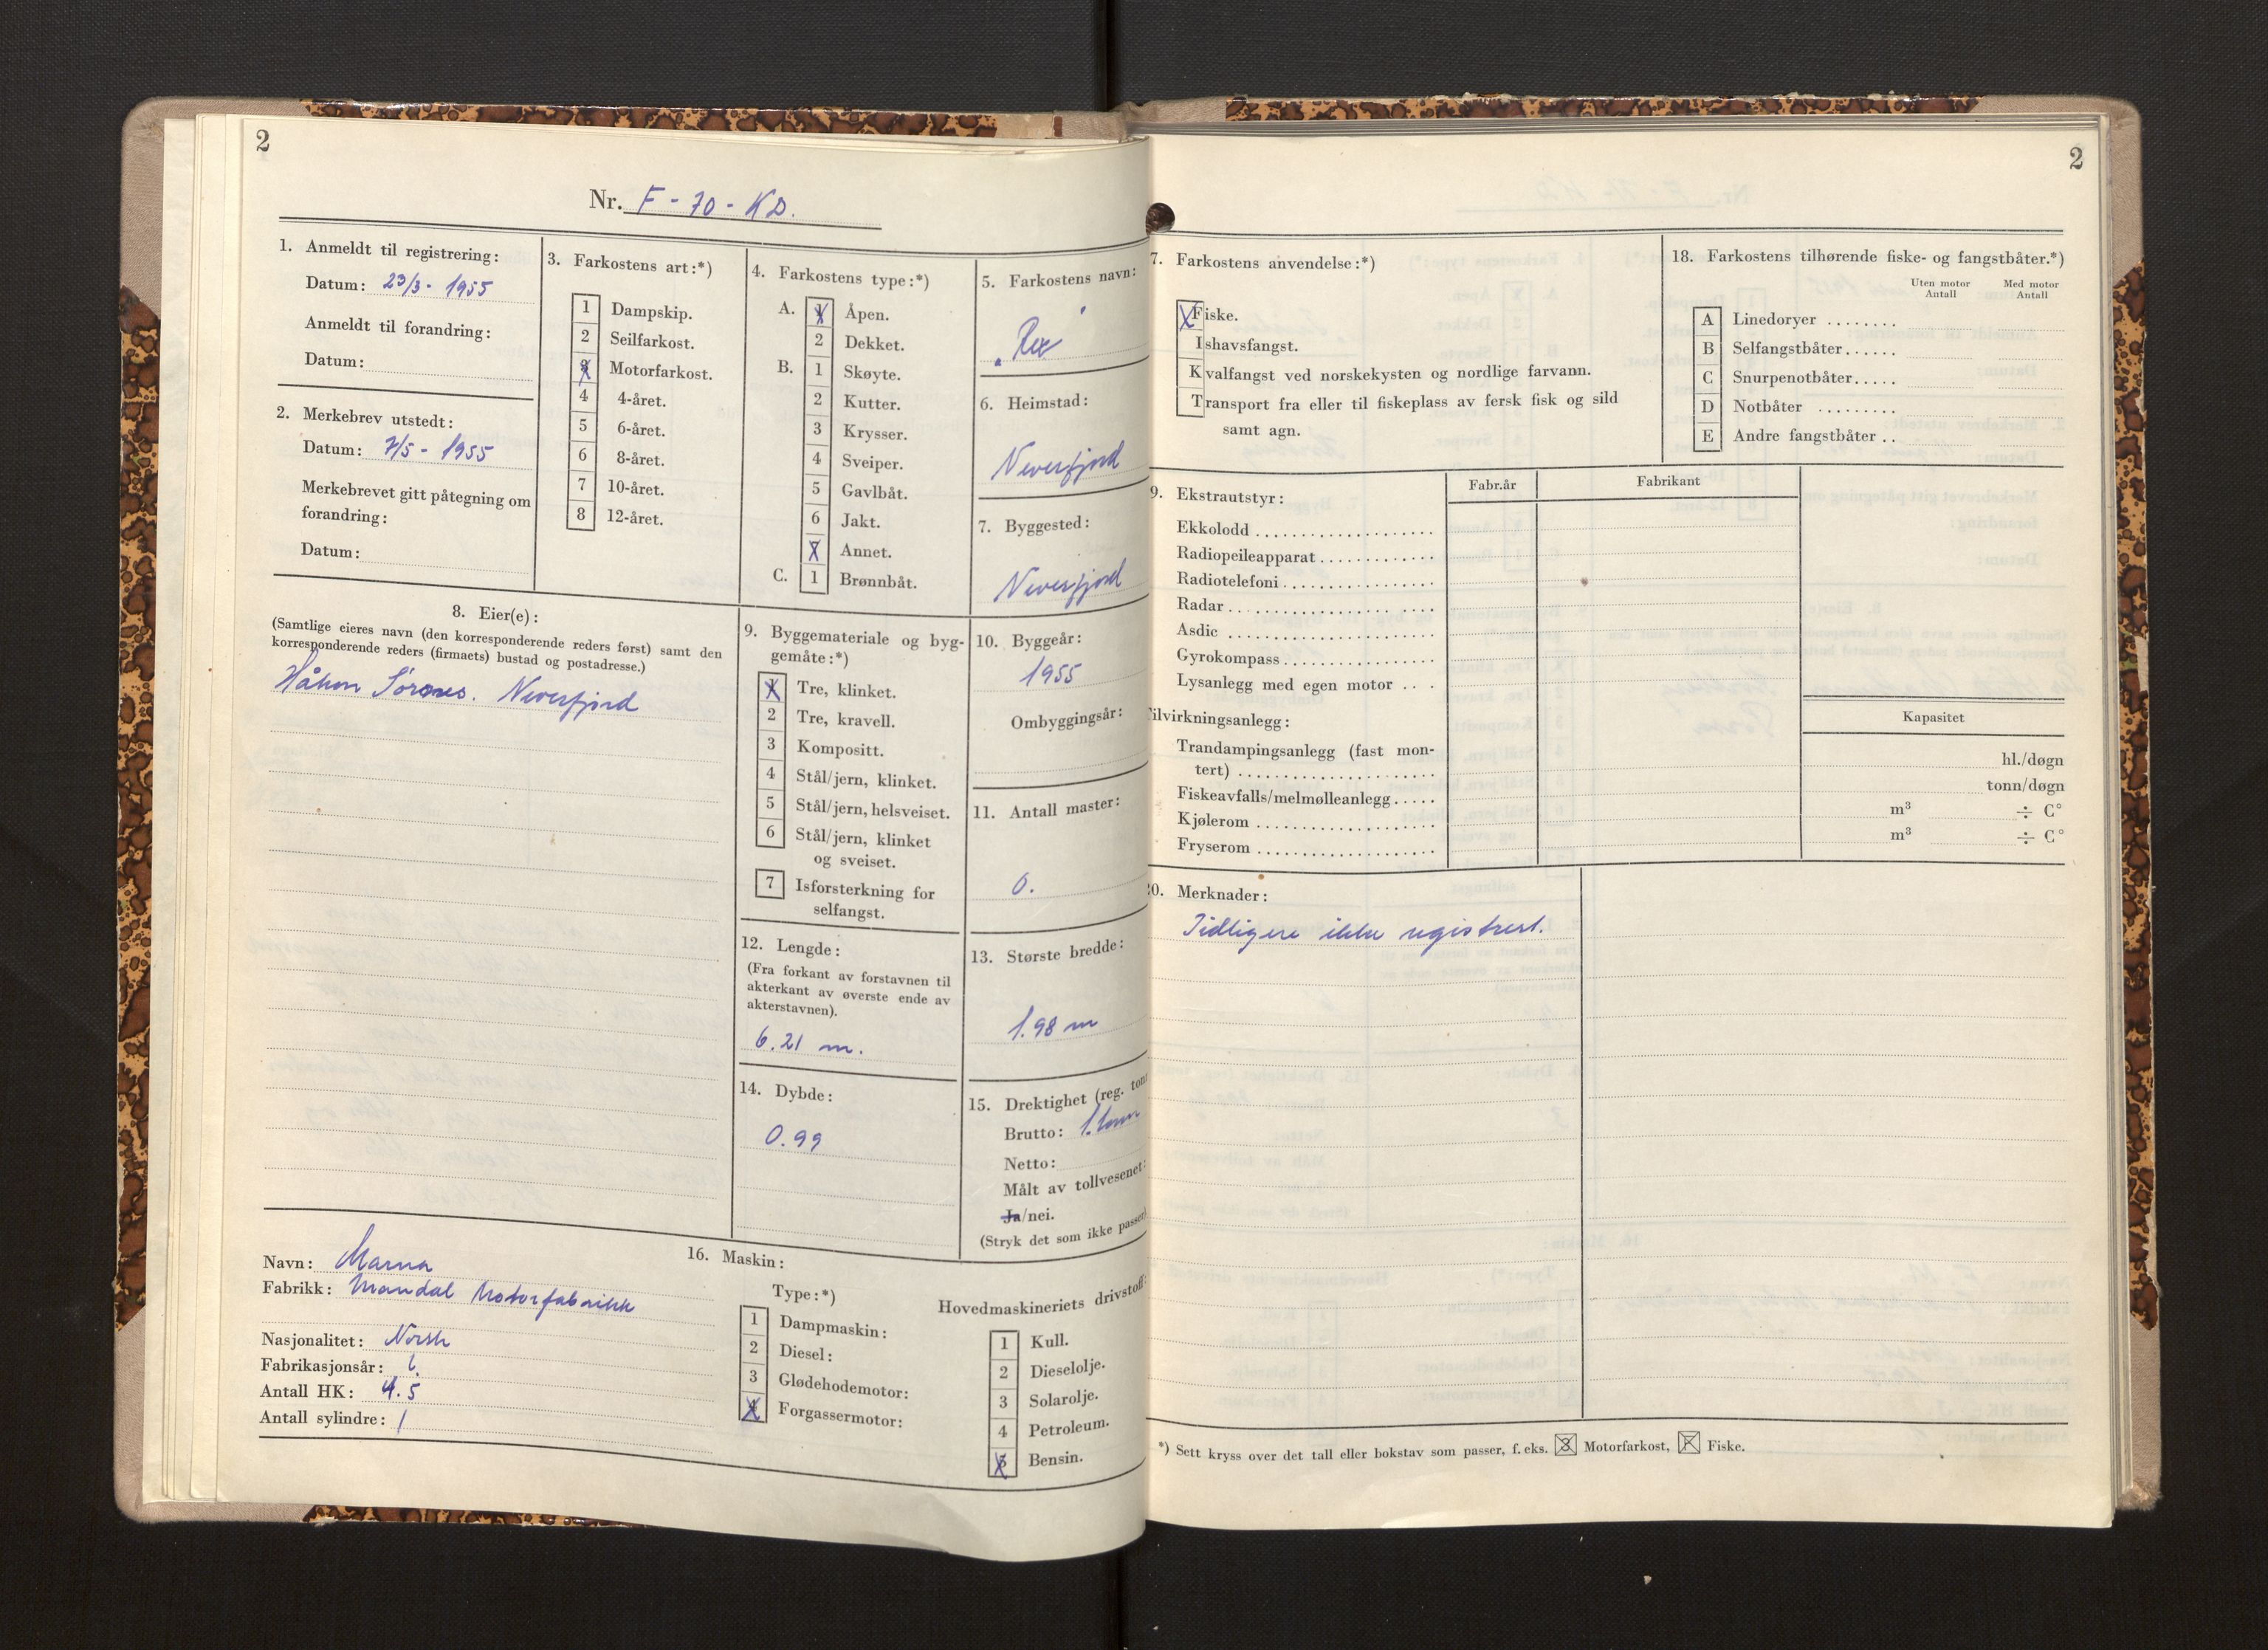 2
Nr. F - 70 - KD.
1. Anmeldt til registrering:
Datum: 23/3 - 1955
Anmeldt til forandring:
Datum:
2. Merkebrev utstedt:
Datum: 7/5 - 1955
Merkebrevet gitt påtegning om
forandring:
Datum:
3. Farkostens art:*)
1 Dampskip.
2 Seilfarkost.
3 Motorfarkost.
4 4-året.
5 6-året.
6 8-året.
7 10-året.
8 12-året.
4. Farkostens type:*)
A. 1 Åpen.
2 Dekket.
B. 1 Skøyte.
2 Kutter.
3 Krysser.
4 Sveiper.
5 Gavlbåt.
6 Jakt.
7 Annet.
C. 1 Brønnbåt.
5. Farkostens navn:
6. Heimstad:
Neverfjord
7. Byggested:
Neverfjord
8. Eier(e):
(Samtlige eieres navn (den korresponderende reders først) samt den
korresponderende reders (firmaets) bustad og postadresse.)
Håkon Neverfjord
9. Byggemateriale og byg-
gemåte:*)
1 Tre, klinket.
2 Tre, kravell.
3 Kompositt.
4 Stål/jern, klinket.
5 Stål/jern, helsveiset.
6 Stål/jern, klinket
og sveiset.
7 Isforsterkning for
selfangst.
10. Byggeår:
1955
Ombyggingsår:
11. Antall master:
0.
12. Lengde:
(Fra forkant av forstavnen til
akterkant av øverste ende av
akterstavnen).
6.21 m.
13. Største bredde:
1.98 m
14. Dybde:
0.99
15. Drektighet (reg. tonn
Brutto: 1. tonn
Netto:
Målt av tollvesenet:
Ja/nei.
(Stryk det som ikke passer)
16. Maskin:
Navn: Marna
Fabrikk: Mandal Motorfabrikk
Nasjonalitet: Norsk
Fabrikasjonsår:
Antall HK: 4.5
Antall sylindre: 1
Type:*)
1 Dampmaskin:
2 Diesel:
3 Glødehodemotor:
4 Forgassermotor:
Hovedmaskineriets drivstoff:
1 Kull.
2 Dieselolje.
3 Solarolje.
4 Petroleum.
5 Bensin.
2
7. Farkostens anvendelse:*)
Fiske.
Ishavsfangst.
Kvalfangst ved norskekysten og nordlige farvann.
Transport fra eller til fiskeplass av fersk fisk og sild
samt agn.
18. Farkostens tilhørende fiske- og fangstbåter.*)
Uten motor Med motor
Antall Antall
A Linedoryer ........
B Selfangstbåter......
C Snurpenotbåter.....
D Notbåter .........
E Andre fangstbåter ..
9. Ekstrautstyr:
Fabr.år Fabrikant
Ekkolodd ...................
Radiopeileapparat ............
Radiotelefoni ................
Radar .......................
Asdic .......................
Gyrokompass ................
Lysanlegg med egen motor ...
Tilvirkningsanlegg:
Kapasitet
Trandampingsanlegg (fast mon-
tert) ..................... hl./døgn
Fiskeavfalls/melmølleanlegg ..... tonn/døgn
Kjølerom ................... m³ ÷ C°
Fryserom ................... m³ ÷ C°
0. Merknader:
Tidligere ikke registrert.
*) Sett kryss over det tall eller bokstav som passer, f. eks. 3 Motorfarkost, F Fiske.